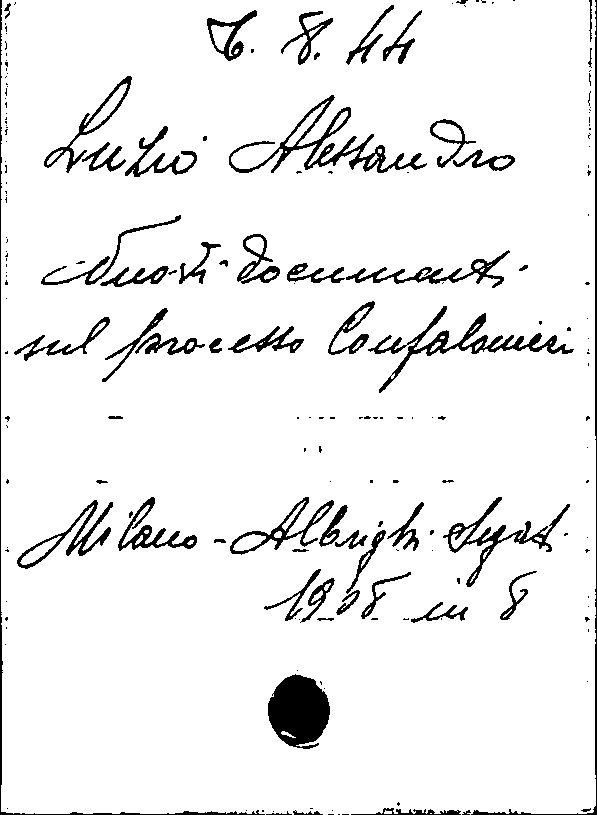 6. 8. 44
Luzio Alessandro
Nuovi documenti
sul processo Confalonieri
Milano - Albrighi Segati
1908 in 8